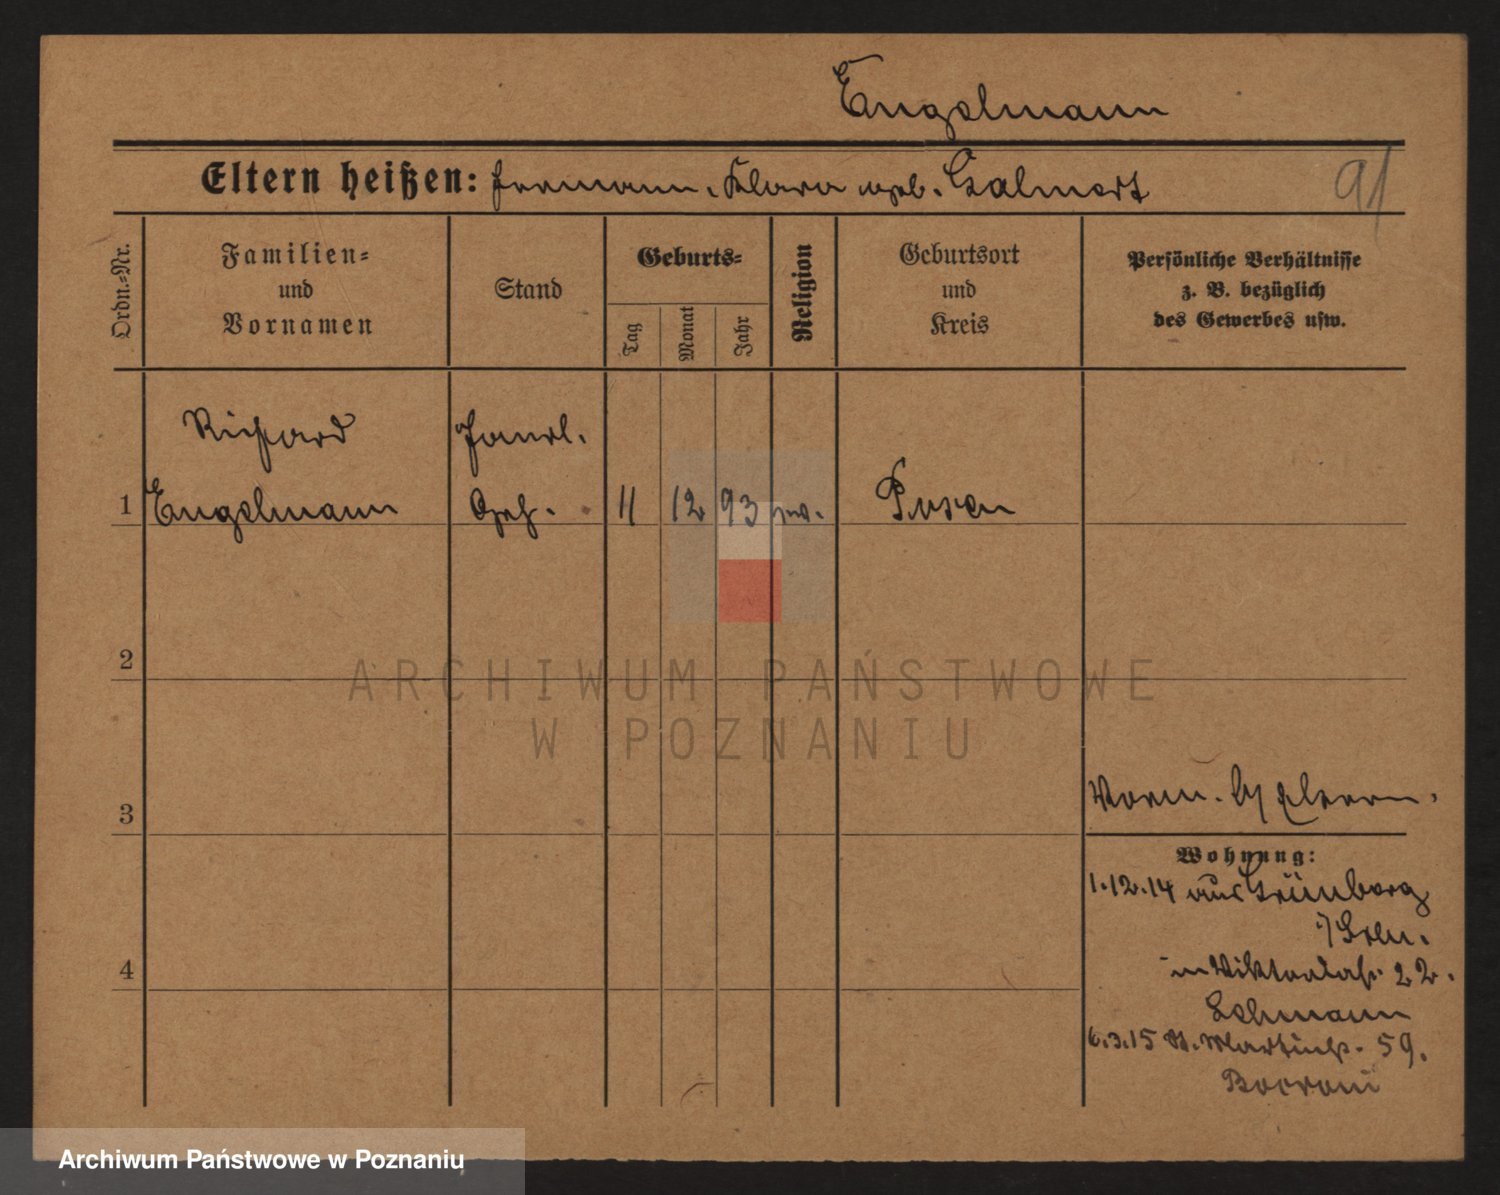 Engelmann
Eltern heißen: Hermann. Klara geb. Galmert
91
Ordn.-Nr.
Familien-
und
Vornamen
Stand
Geburts-
Tag
Monat
Jahr
Religion
Geburtsort
und
Kreis
Persönliche Verhältnisse
z. B. bezüglich
des Gewerbes usw.
Richard
Handl.
1 Engelmann Geh. 11 12 93 ev. Posen
2
ARCHIWUM PAŃSTWOWE
W POZNANIU
3
Vorm. b/ Eltern.
Wohnung:
1.12.14 aus Grünberg
i/Schl.
in Viktoriastr. 22.
Lehmann
6.3.15 St. Martinstr. 59.
4
Archiwum Państwowe w Poznaniu